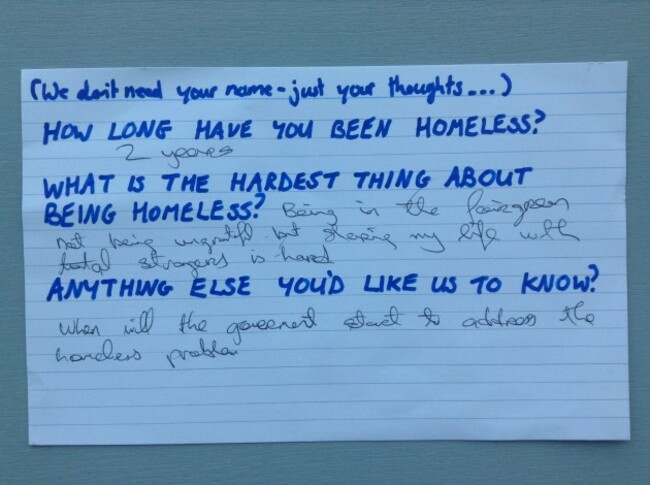 (We don't need your name - just your thoughts...)
HOW LONG HAVE YOU BEEN HOMELESS?
2 years
WHAT IS THE HARDEST THING ABOUT
BEING HOMELESS? Being in the fairgreen
not being ungratful but sharing my life with
total strangers is hard
ANYTHING ELSE YOU'D LIKE US TO KNOW?
when will the goverment start to address the
problem